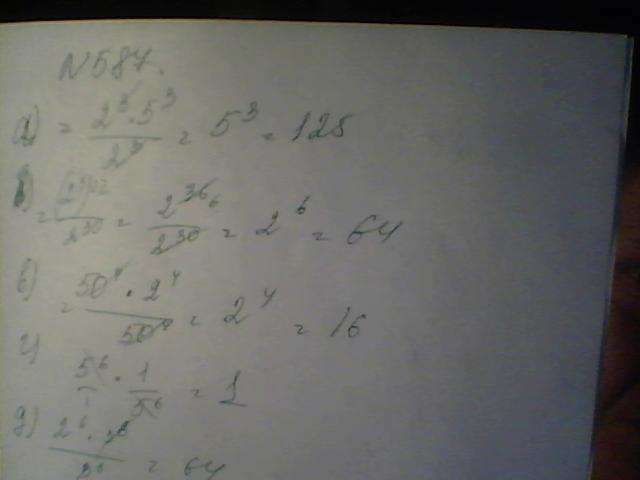 N 584.
а) = 2³ · 5³ / 2³ = 5³ = 125
б) = / 2³⁰ = 2³⁶ / 2³⁰ = 2⁶ = 64
в) = 50⁴ · 2⁴ / 50⁴ = 2⁴ = 16
г) 5⁶ / 1 · 1 / 5⁶ = 1
д) 2⁶ · / = 64